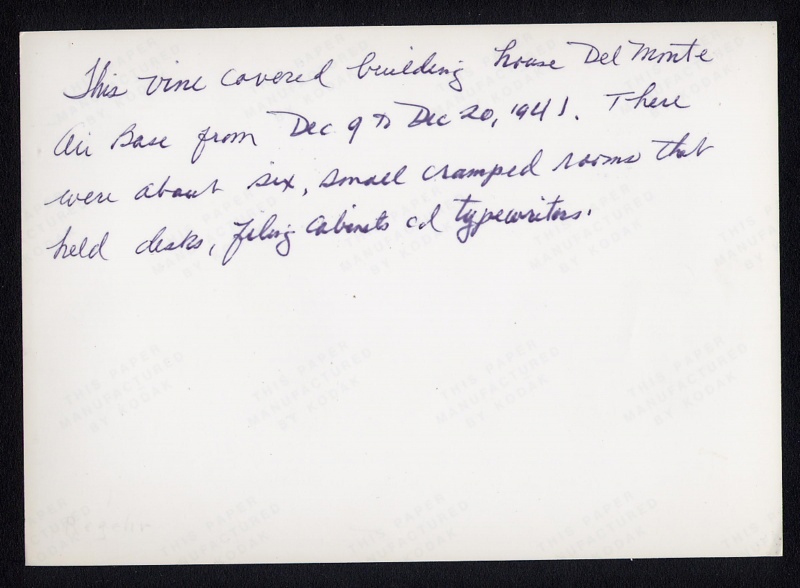 This vine covered building house Del Monte
Air Base from Dec 9 to Dec 20, 1941. There
were about six, small cramped rooms that
held desks, filing cabinets and typewriters.
THIS PAPER
MANUFACTURED
BY KODAK